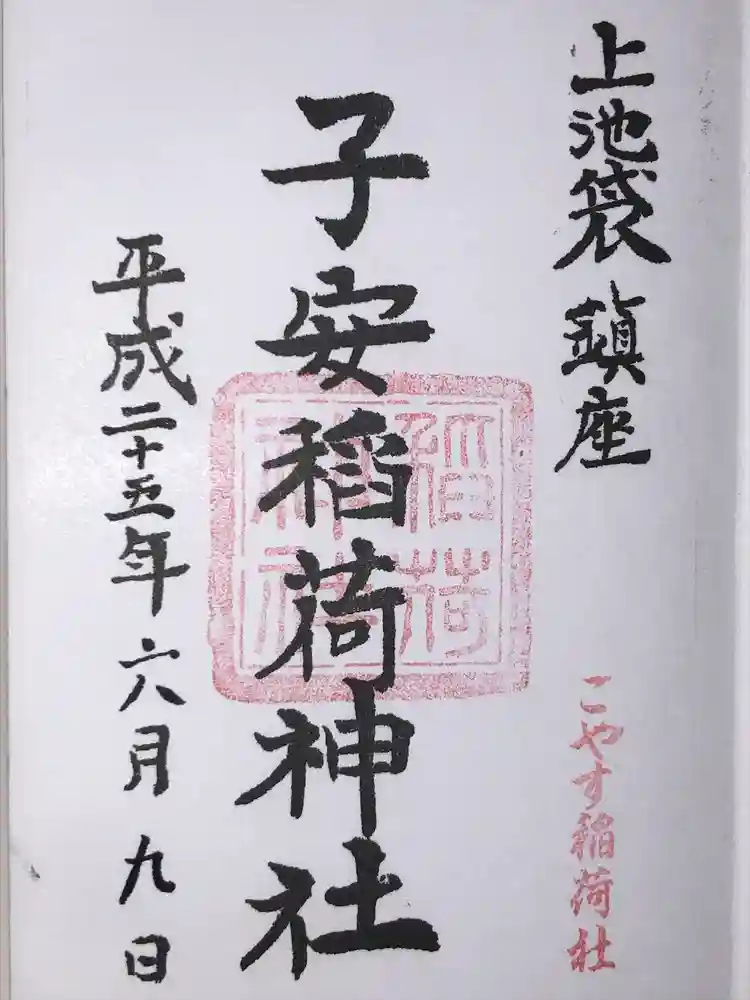 上池袋鎮座
こやす稲荷社
子安稲荷神社
稲荷
神社
平成二十五年六月九日